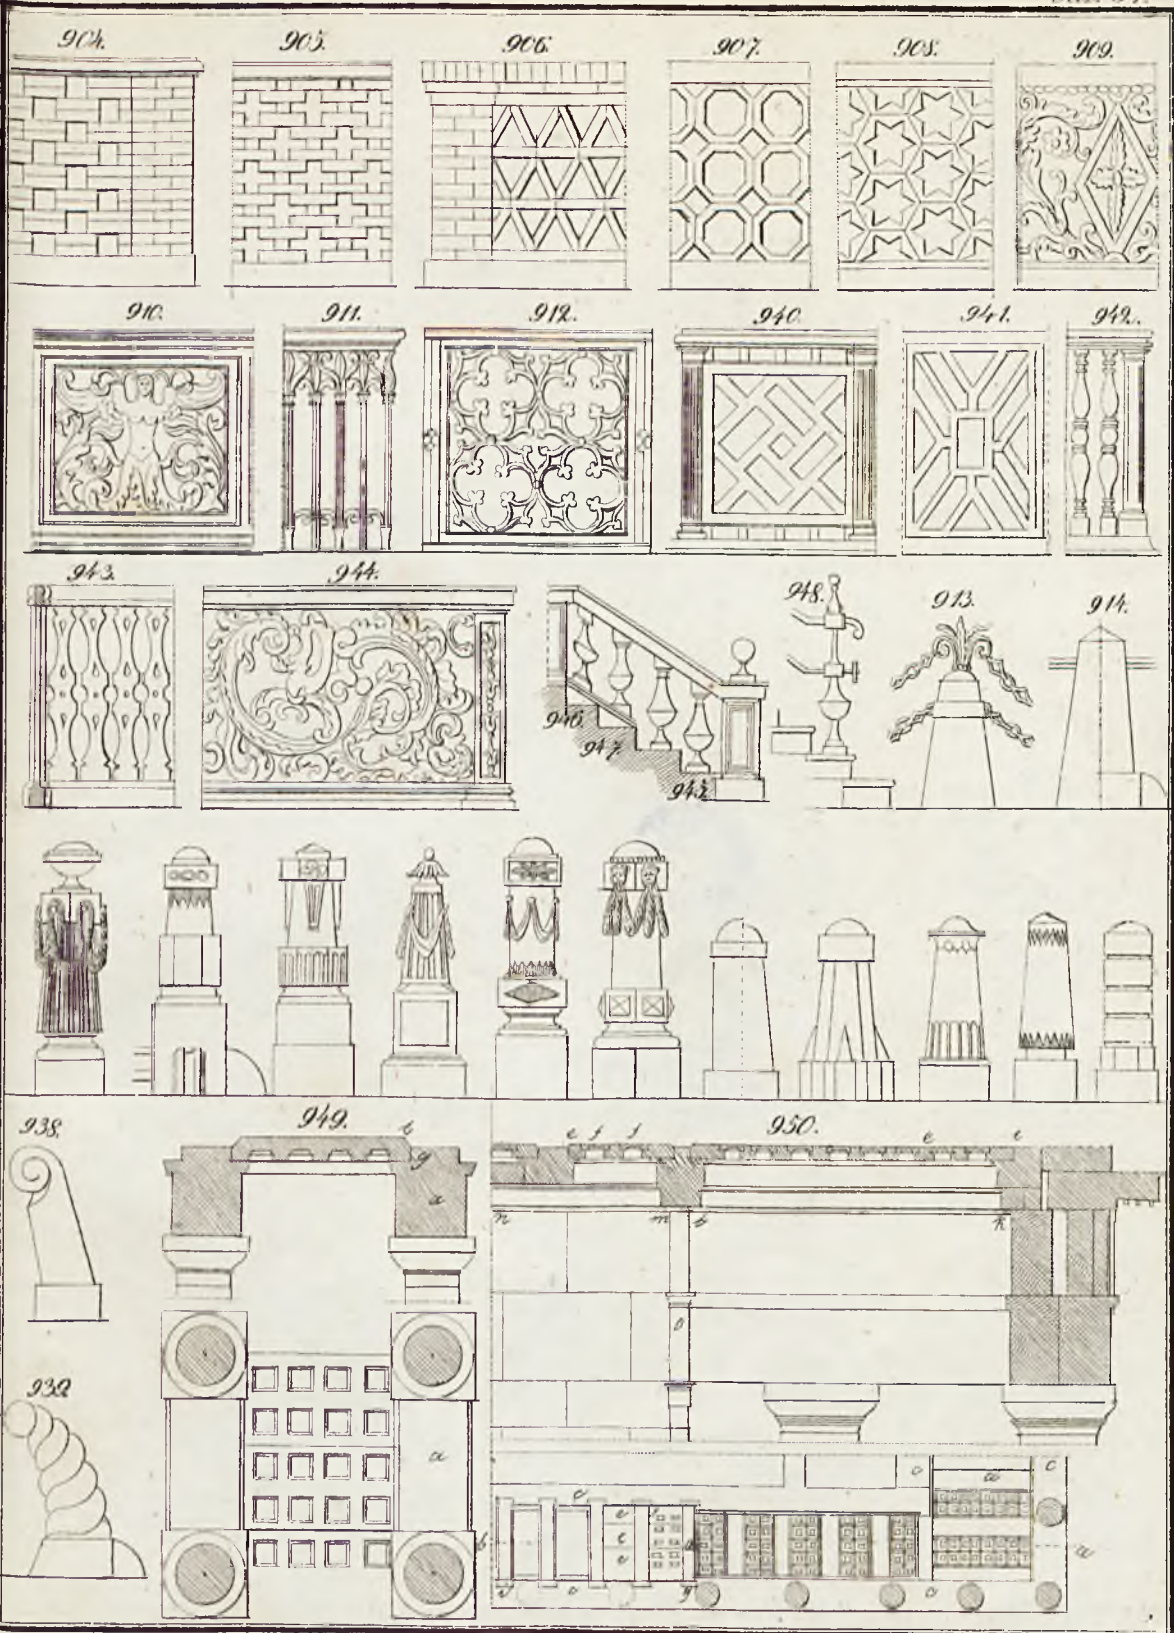 904. 905. 906. 907. 908. 909.
910. 911. 912. 940. 941. 942.
943. 944. 948. 913. 914.
946.
947.
945.
938. 949. 950.
e f f e i
g
a
n m b k
o
939.
a
c a c
e
e
e
e
b a
g
c c